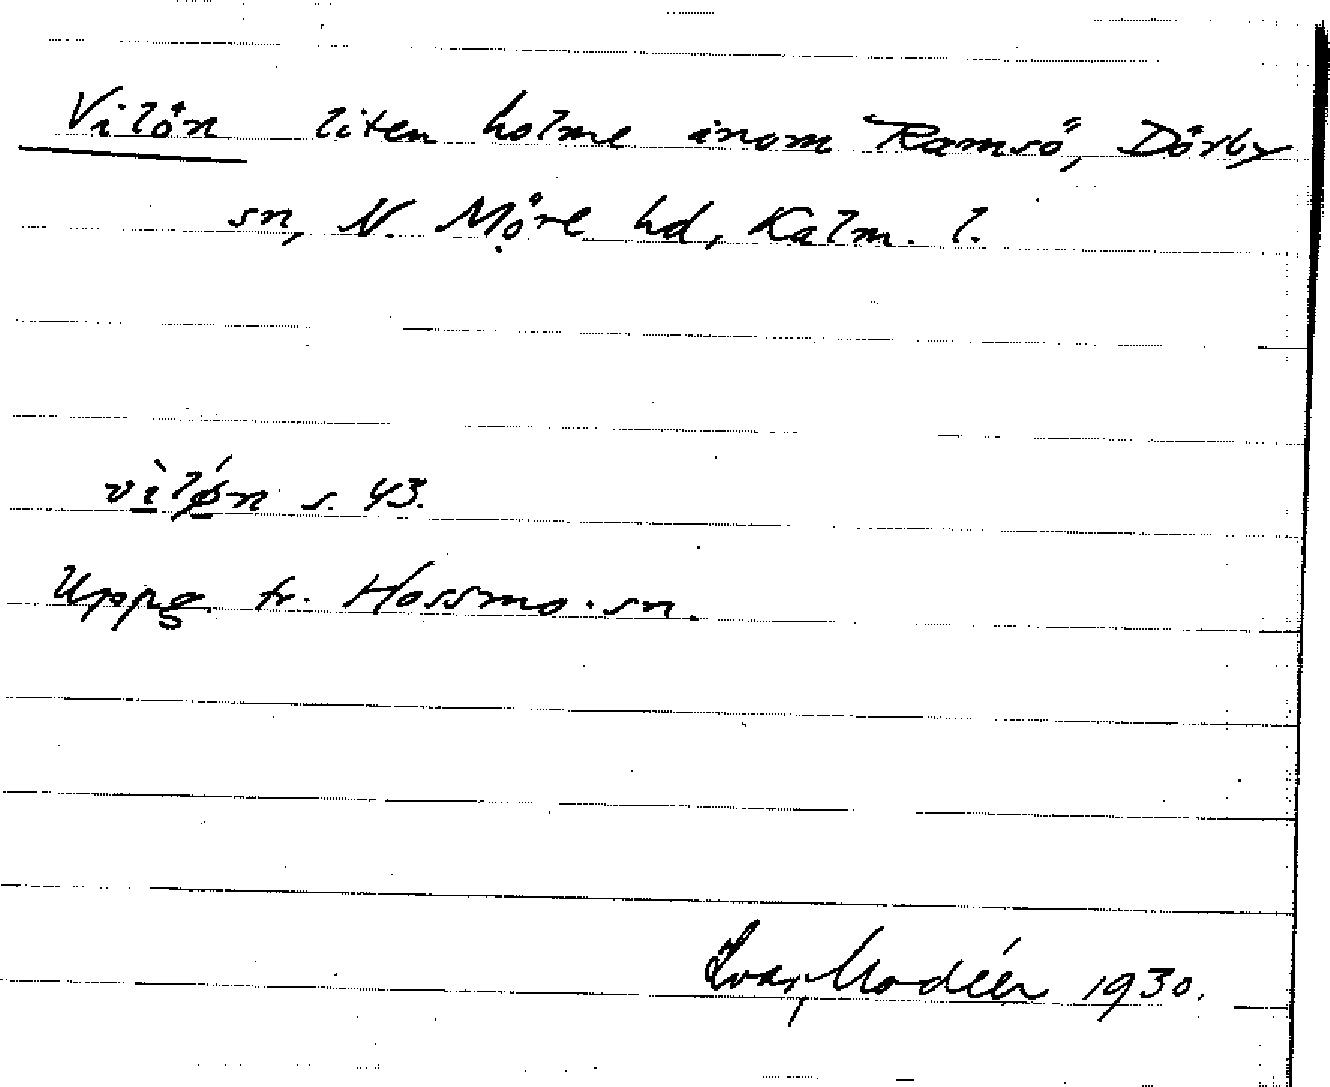 Vilön liten holme inom Ramsö, Dörby
sn, N. Möre hd, Kalm. l.
vì̱lǿ̱n s. 43.
Uppg. fr. Hossmo sn.
Ivar Modéer 1930.